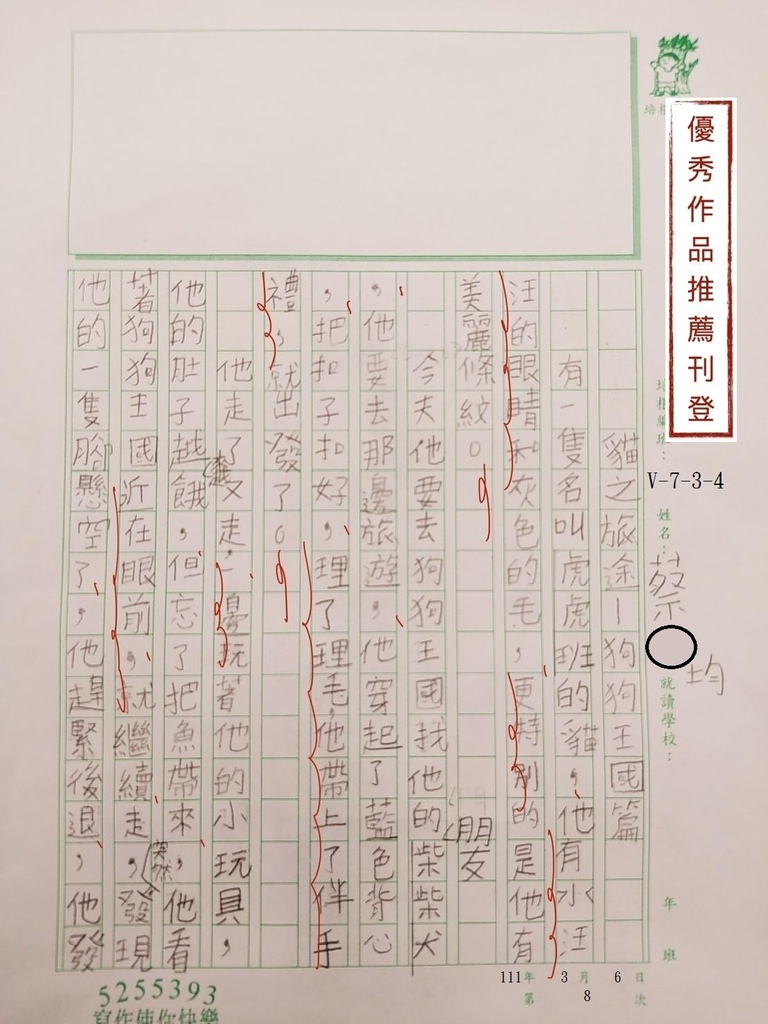 優秀作品推薦刊登
V-7-3-4
姓名：蔡
均
就讀學校：
年
班
貓之旅途－狗狗王國篇
有一隻名叫虎虎班的貓，他有水汪
汪的眼睛和灰色的毛，更特別的是他有
美麗條紋。
今天他要去狗狗王國找他的朋友柴柴犬
，他要去那邊旅遊，他穿起了藍色背心
，把扣子扣好，理了理毛，他帶上了伴手
禮，就出發了。
他走了又走，一邊玩著他的小玩具，
他的肚子越餓，但忘了把魚帶來，他看
著狗狗王國近在眼前，就繼續走，突然發現
他的一隻腳懸空了，他趕緊後退，他發
111年 3月 6日
第 8 次
5255393
寫作使你快樂